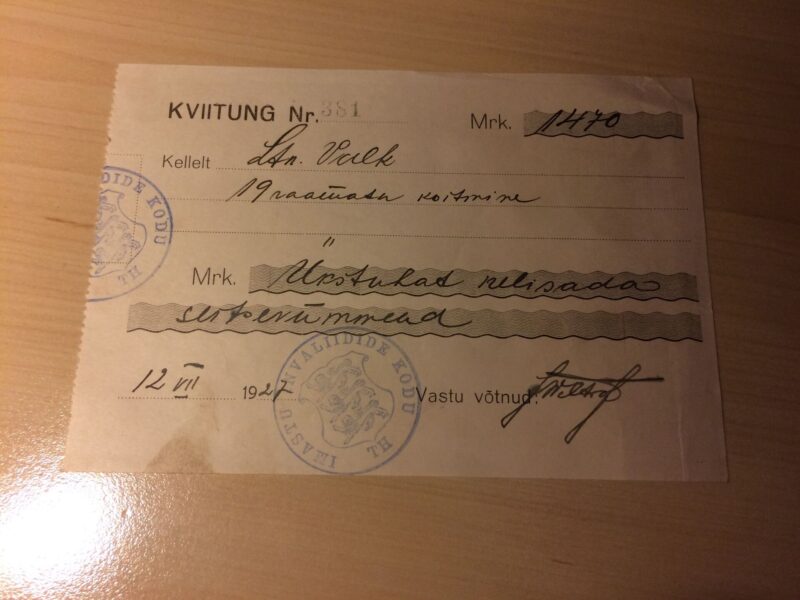 KVIITUNG Nr. 381
Mrk. 1470
Kellelt Ltn. Valk
19 raamatu köitmine
Mrk. Ükstuhat nelisada
seitsekümmend
12 VII 1927 Vastu võtnud:
INVALIIDIDE KODU
IMASTU INVALIIDIDE KODU HT